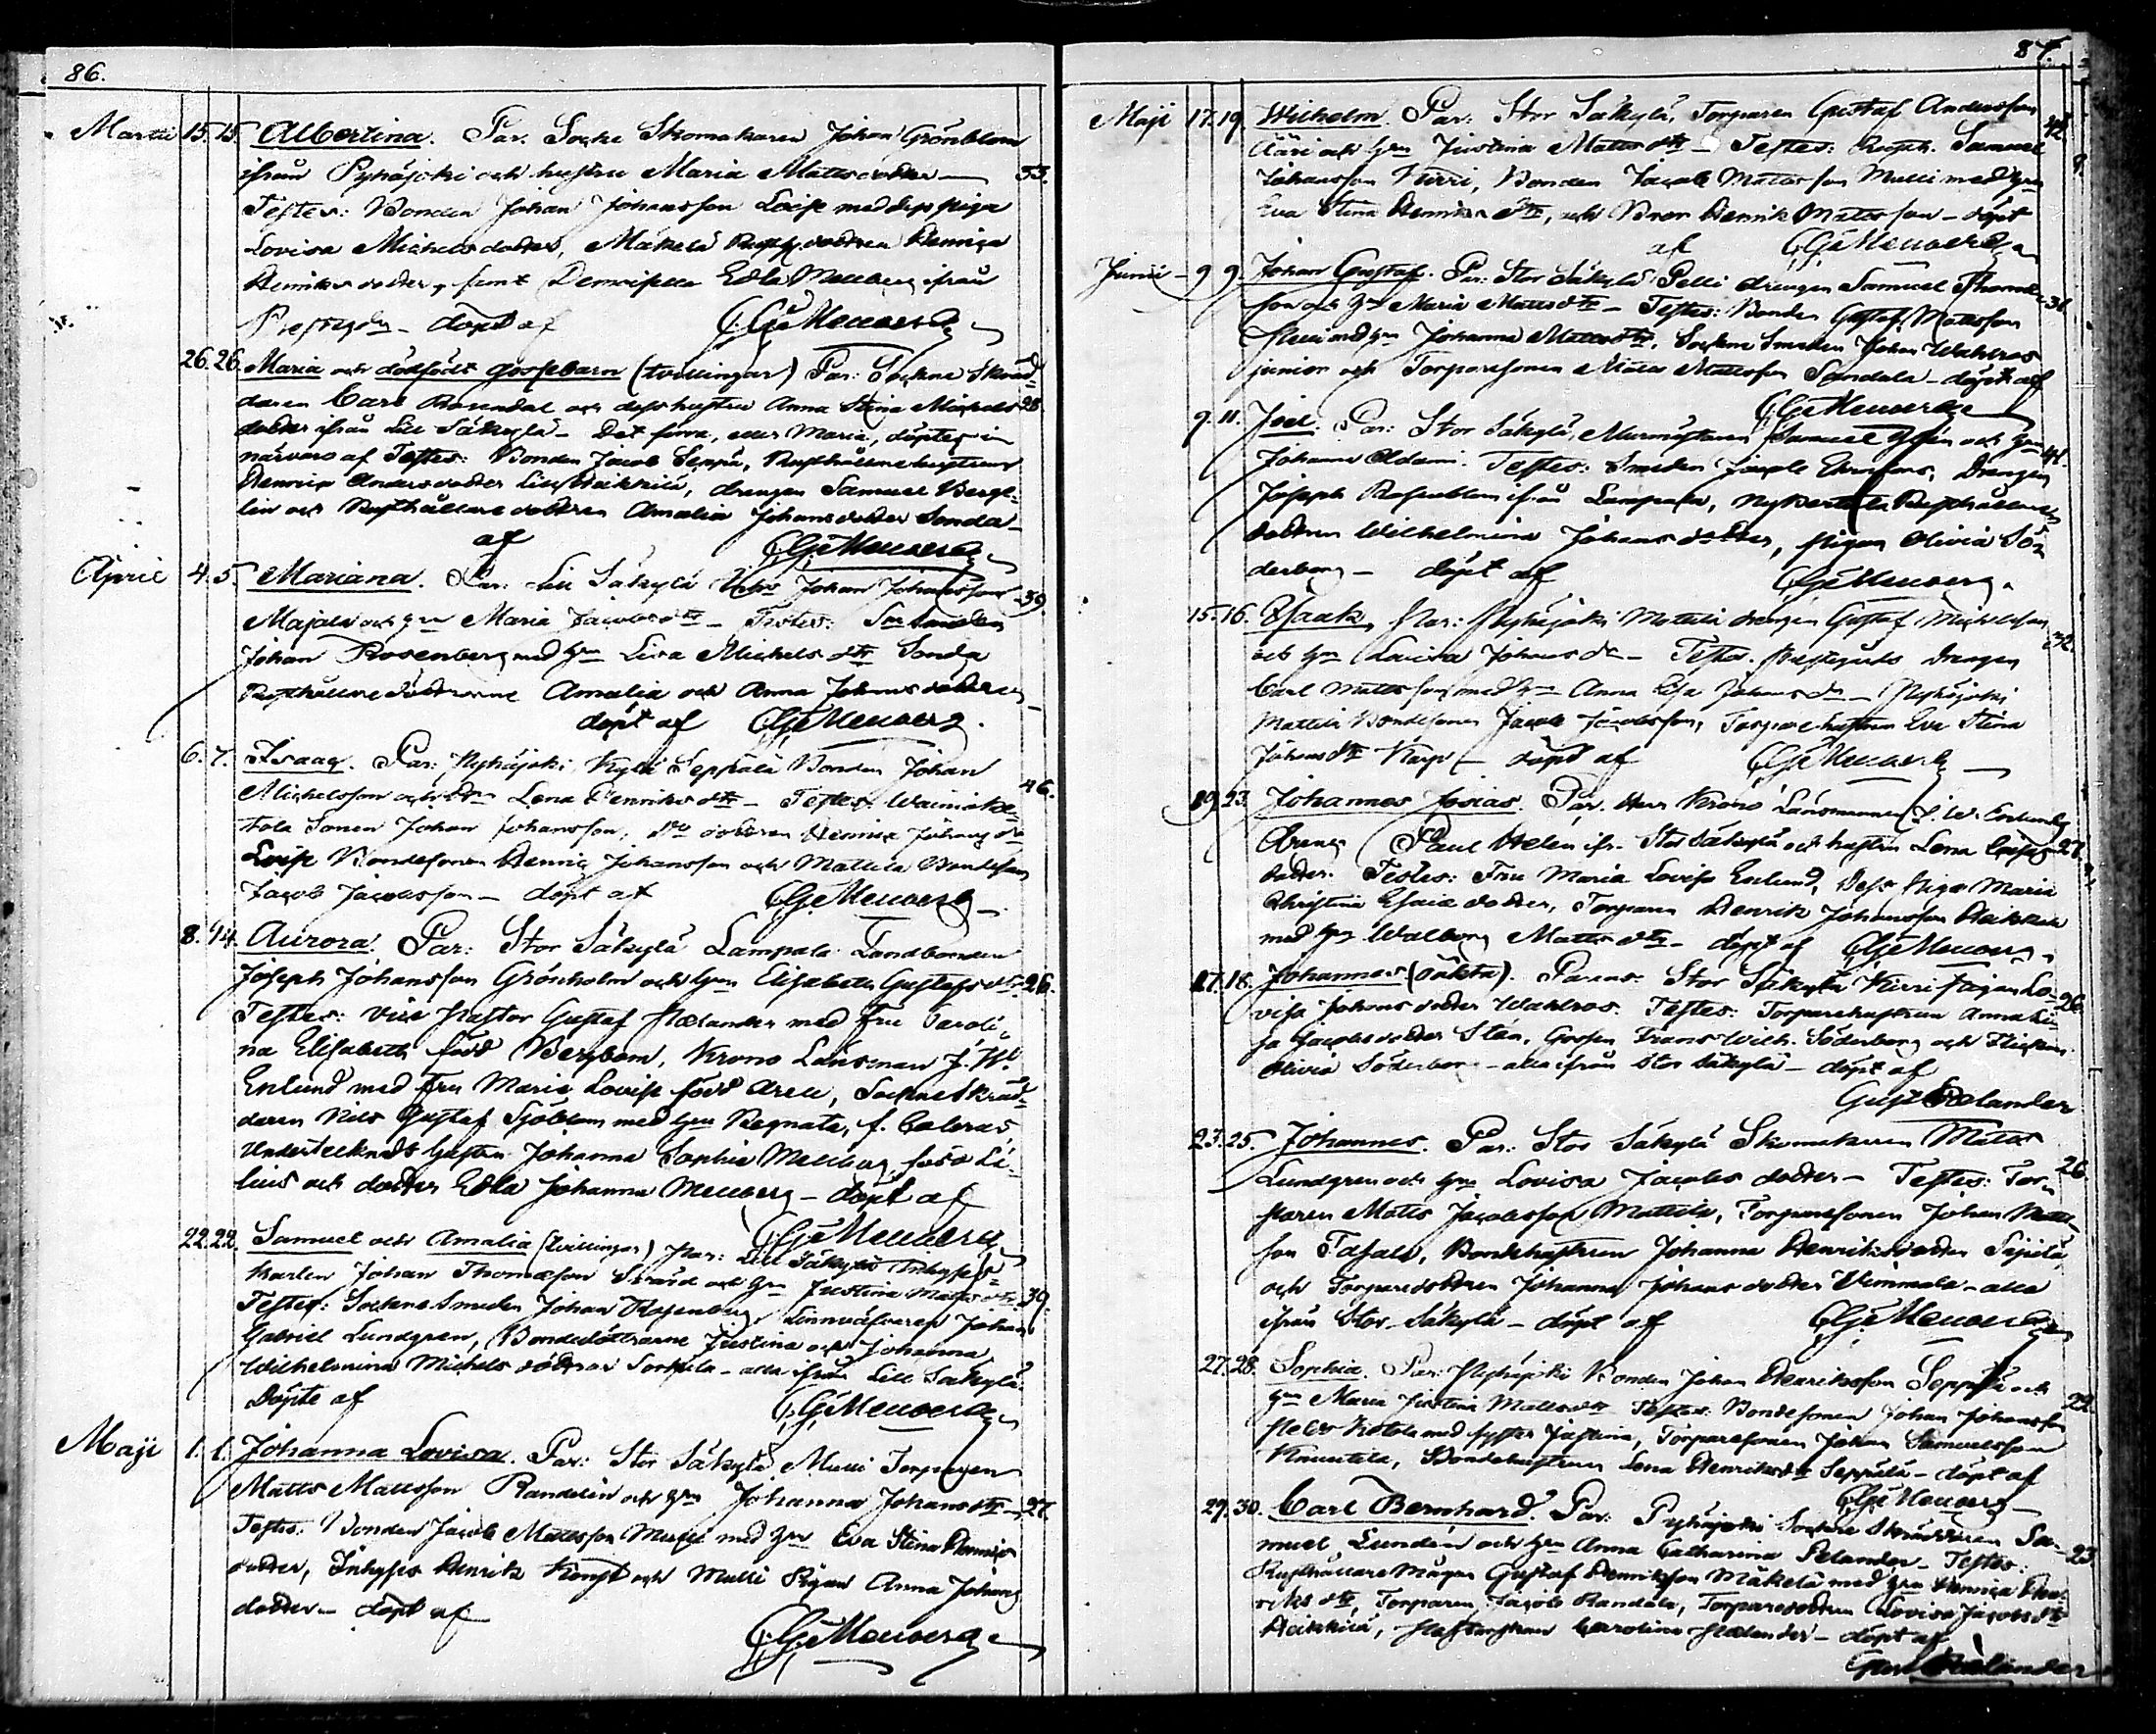 86.
Martii 15. 15. Albertina. Par. Socke Skomakaren Johan Grönblom
ifrån Pyhäjoki och hustru Maria Mattsdotter — 33.
Testes: Bonden Johan Johansson Loise med dess piga
Lovisa Michelsdotter, Mäkelä dottren Henrica
Henriksdotter, samt Demoiselle Edla Mellberg ifrån
Prestgården — döpt af C.G. Mellberg
26. 26. Maria och dödfödt gossebarn (tvillingar) Par: Sockne Skräd-
daren Carl Rosendal och dess hustru Anna Stina Michels- 28.
dotter ifrån Lill Säkylä — Det förra, eller Maria, döptes i
närvaro af Testes: Bonden Jacob Seppä, Rusthållarehustrun
Henrica Andersdotter Heikkilä, drängen Samuel Berge-
lin och Rusthållaredottren Amalia Johansdotter Sonda —
af C.G. Mellberg
April 4. 5. Mariana. Par: Lill Säkylä Johan Johansson 39.
Majala och hru Maria Jacobsdtr — Testes: Sockensmeden
Johan Rosenberg med hru Lisa Michelsdtr Sonda
Rusthållaredöttrarne Amalia och Anna Johansdöttrar
döpt af C.G. Mellberg.
6. 7. Isaac. Par: Pyhäjoki Kylä Seppälä Bonden Johan
Michelsson och hru Lena Henriksdtr — Testes: 46.
tola Sonen Johan Johansson, dottren Henrica Johansdtr
Loise Bondesonen Henric Johansson och Mattila Bondeson
Jacob Jacobsson — döpt af C.G. Mellberg
8. 14. Aurora. Par: Stor Säkylä Lampala Landbonden
Joseph Johansson Grönholm och hru Elisabeth Gustafsdtr 26.
Testes: Vice Pastor Gustaf Hælander med Fru Caroli-
na Elisabeth född Bergbom, Krono Länsman J. W.
Enlund med Fru Maria Lovisa född Aréll, Sockne Skräd-
daren Nils Gustaf Sjöblom med hru Regnata, f. Caleras
Undertecknads hustru Johanna Sophia Mellberg, född Li-
lius och dotter Edla Johanna Mellberg — döpt af
C.G. Mellberg
22. 22. Samuel och Amalia (tvillingar) Par: Lill Säkylä Inhyses-
karlen Johan Thomasson Svärd och hru Justina Mattsdtr 39.
Testes: Sockne Smeden Johan Rosenberg, Linneväfveren Johan
Gabriel Lundgren, Bondedöttrarne Justina och Johanna
Wilhelmina Michelsdöttrar Sorkela — alla ifrån Lill Säkylä.
Döpte af C.G. Mellberg
Maji 1. 1. Johanna Lovisa. Par: Stor Säkylä Mulli Torparen
Matts Mattsson Randelin och hru Johanna Johansdtr — 27.
Testes: Bonden Jacob Mattsson Mulli med hru Eva Stina Henriks-
dotter, Inhyses Henrik Kongs och Mulli Pigan Anna Johans-
dotter — döpt af
C.G. Mellberg
87.
Maji 17. 19. Wilhelm. Par: Stor Säkylä, Torparen Gustaf Andersson
Ääri och hru Justina Mattsdtr — Testes: Rusth. Samuel 42.
Johansson Kirri, Bonden Jacob Mattsson Mulli med hru
Eva Stina Henriksdtr, och Bror Henrik Mattsson — döpt
af C.G. Mellberg
Junii — 9 9. Johan Gustaf. Par: Stor Säkylä Pelli drängen Samuel Thomas-
son och hru Maria Mattsdtr — Testes: Bonden Gustaf Mattsson 31.
Pelli med hru Johanna Mattsdtr, Sockne Smeden Johan Wahlros
junior och Torparesonen Matts Mattsson Sandala — döpt af
C.G. Mellberg
9. 11. Joel. Par: Stor Säkylä, Murmästaren Samuel och hru 41.
Johanna Adami. Testes: Smeden Jacob Drängen
Joseph Rosenblom ifrån Lampala, Rusthållare-
dottren Wilhelmina Johansdotter, pigan Olivia Sö-
derberg — döpt af C.G. Mellberg.
15. 16. Isaak, Par: Pyhäjoki Mattila drängen Gustaf Michelsson 32.
och hru Lovisa Johansdr — Testes. Prestgårds drängen
Carl Mattsson med hru Anna Lisa Johansdr — Pyhäjoki
Mattila Bondesonen Jacob Jacobsson, Torparehustrun Eva Stina
Johansdtr Karp — döpt af C.G. Mellberg
19. 23. Johannes Josias. Par. Herr Krono Länsmannen J. W. Enlunds
dräng Paul Helen ifr. Stor Säkylä och hustru Lena 27.
dotter. Testes: Fru Maria Lovisa Enlund, Dess Piga Maria
Christina Esaiædotter, Torparen Henrik Johansson Heikkilä
med hru Walborg Mattsdtr — döpt af C.G. Mellberg.
17. 18. Johannes (oäkta). Parens: Stor Säkylä Kirri pigan Lo- 26.
visa Johansdotter Wahlros. Testes: Torparehustrun Anna Li-
sa Jacobsdotter Stén, Gossen Frans Wilh. Söderborg och Flickan
Olivia Söderborg — alla ifrån Stor Säkylä — döpt af
Gust. Hælander
23. 25. Johannes. Par: Stor Säkylä Skomakaren Matts
Lundgren och hru Lovisa Jacobsdotter — Testes: Tor- 26.
paren Matts Jacobsson Mattila, Torparesonen Johan Matts-
son Tasala, Bondehustrun Johanna Henriksdotter Sipilä,
och Torparedottren Johanna Johansdotter Uimmala — alla
ifrån Stor Säkylä — döpt af C.G. Mellberg
27. 28. Sophia. Par: Pyhäjoki Bonden Johan Henriksson Seppälä och
hru Maria Justina Mattsdtr Testes: Bondesonen Johan Johansson 22.
med syster Justina, Torparesonen Johan Samuelsson
Knuutila, Bondehustrun Lena Henriksdtr Seppälä — döpt af
C.G. Mellberg
29. 30. Carl Bernhard. Par: Pyhäjoki Sockne Skräddaren Sa-
muel Lundén och hru Anna Catharina Selander — Testes: 23.
Rusthållare Mågen Gustaf Henriksson Mäkelä med hru Henrica Hen-
riksdtr, Torparen Jacob Randala, Torparedottren Lovisa Jacobsdtr
Heikkilä, Pastorskan Carolina Hælander — döpt af
Gust. Hælander